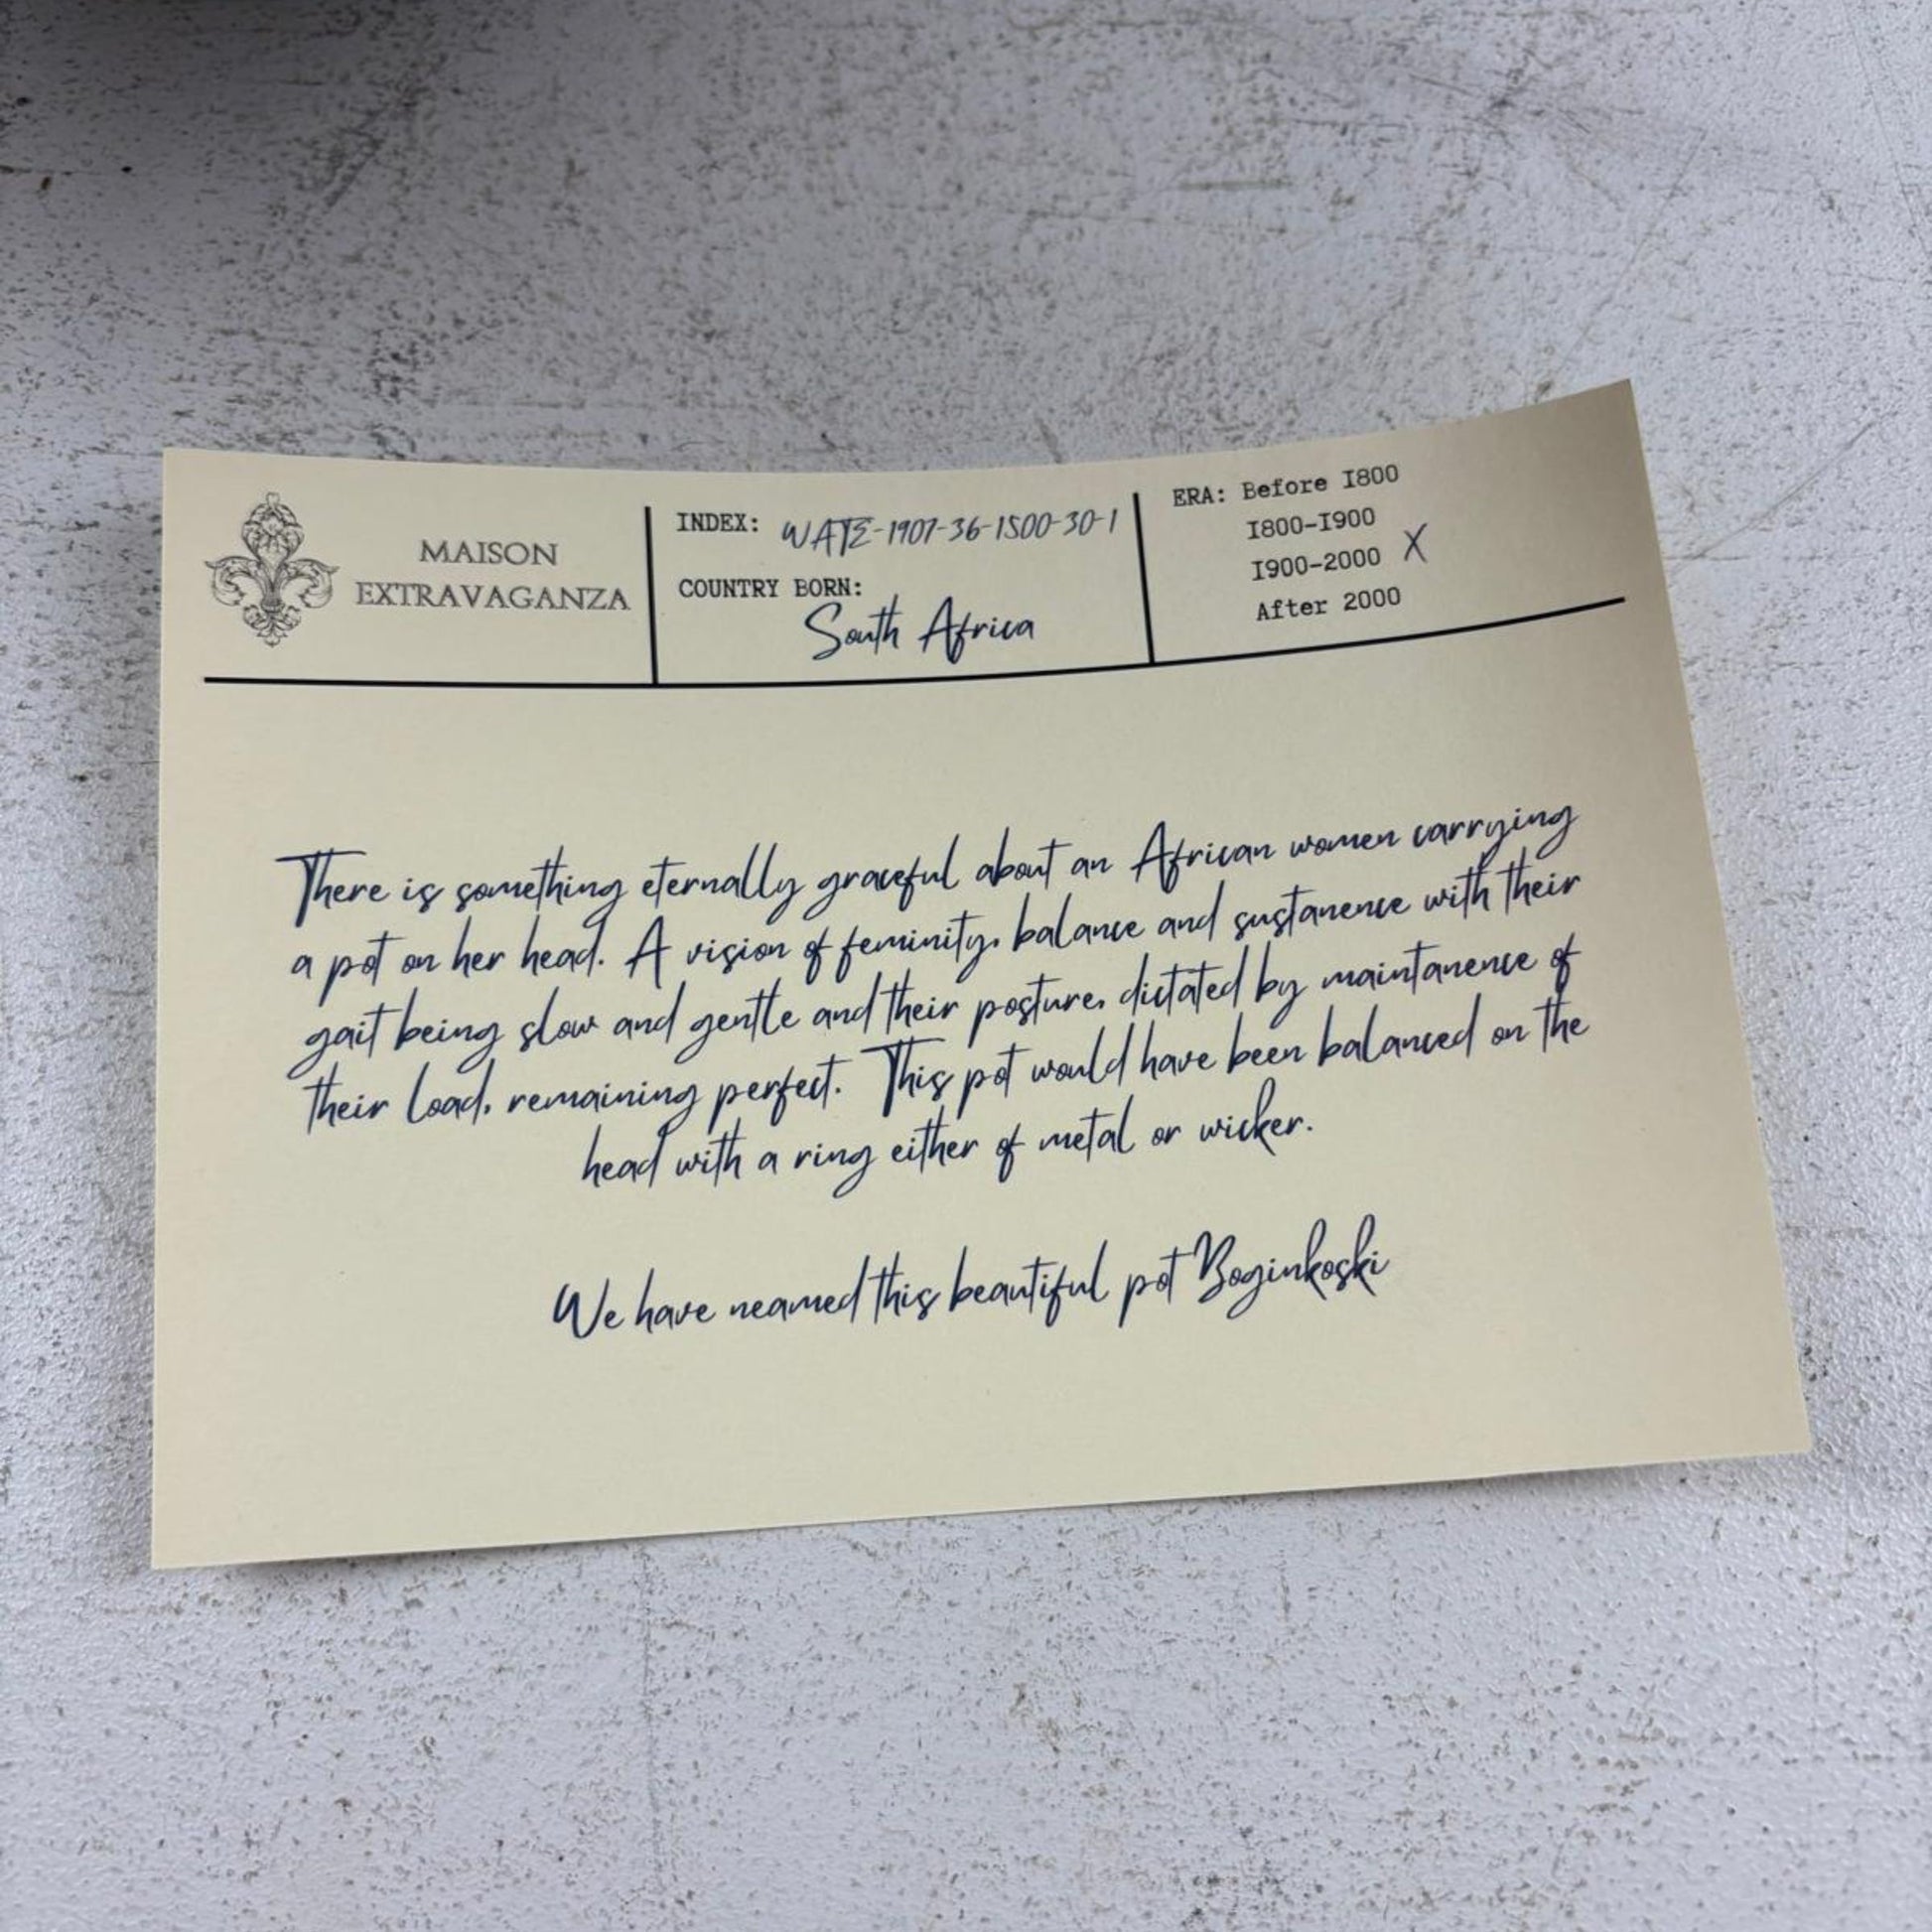 MAISON
EXTRAVAGANZA
INDEX: WATE-1907-36-1500-30-1
COUNTRY BORN:
South Africa
ERA: Before I800
I800-I900
I900-2000 X
After 2000
There is something eternally graceful about an African women carrying
a pot on her head. A vision of feminity, balance and sustanence with their
gait being slow and gentle and their posture, dictated by maintanence of
their load, remaining perfect. This pot would have been balanced on the
head with a ring either of metal or wicker.
We have neamed this beautiful pot Boginkoski